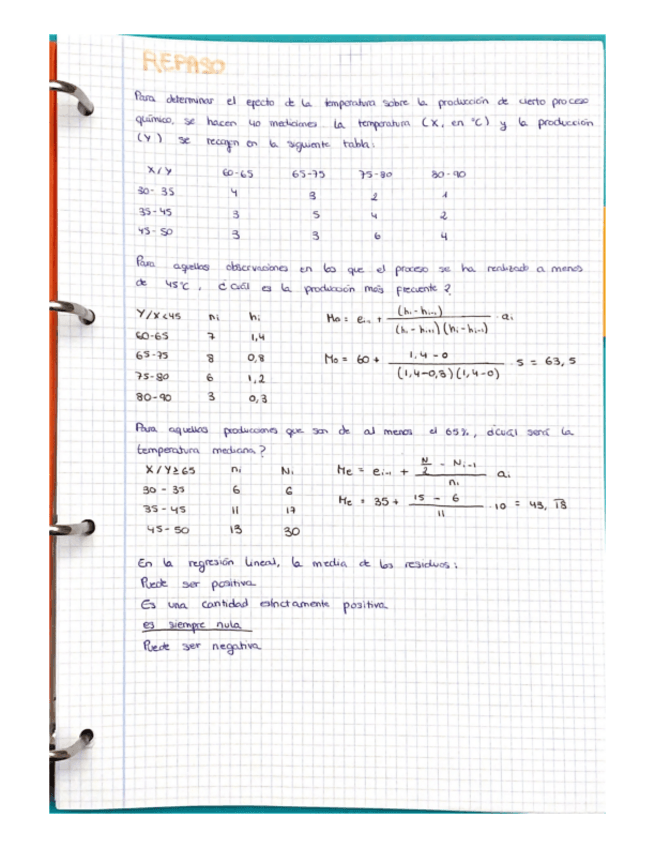 REPASO
Para determinar el efecto de la temperatura sobre la producción de cierto proceso
químico, se hacen 40 mediciones. La temperatura (X, en °C) y la producción
(Y) se recogen en la siguiente tabla:
X/Y 60-65 65-75 75-80 80-90
30-35 4 3 2 1
35-45 3 5 4 2
45-50 3 3 6 4
Para aquellas observaciones en las que el proceso se ha realizado a menos
de 45°C, ¿cuál es la producción más frecuente?
Y/X<45 ni hi Mo = ei-1 + (hi - hi-1) / (hi - hi+1)(hi - hi-1) · ai
60-65 7 1,4
65-75 8 0,8 Mo = 60 + 1,4-0 / (1,4-0,8)(1,4-0) · 5 = 63,5
75-80 6 1,2
80-90 3 0,3
Para aquellas producciones que son de al menos el 65%, ¿cuál será la
temperatura mediana?
X/Y≥65 ni Ni Me = ei-1 + N/2 - Ni-1 / ni ai
30-35 6 6
35-45 11 17 Me = 35 + 15 - 6 / 11 · 10 = 43,18
45-50 13 30
En la regresión lineal, la media de los residuos:
Puede ser positiva
Es una cantidad estrictamente positiva
es siempre nula
Puede ser negativa